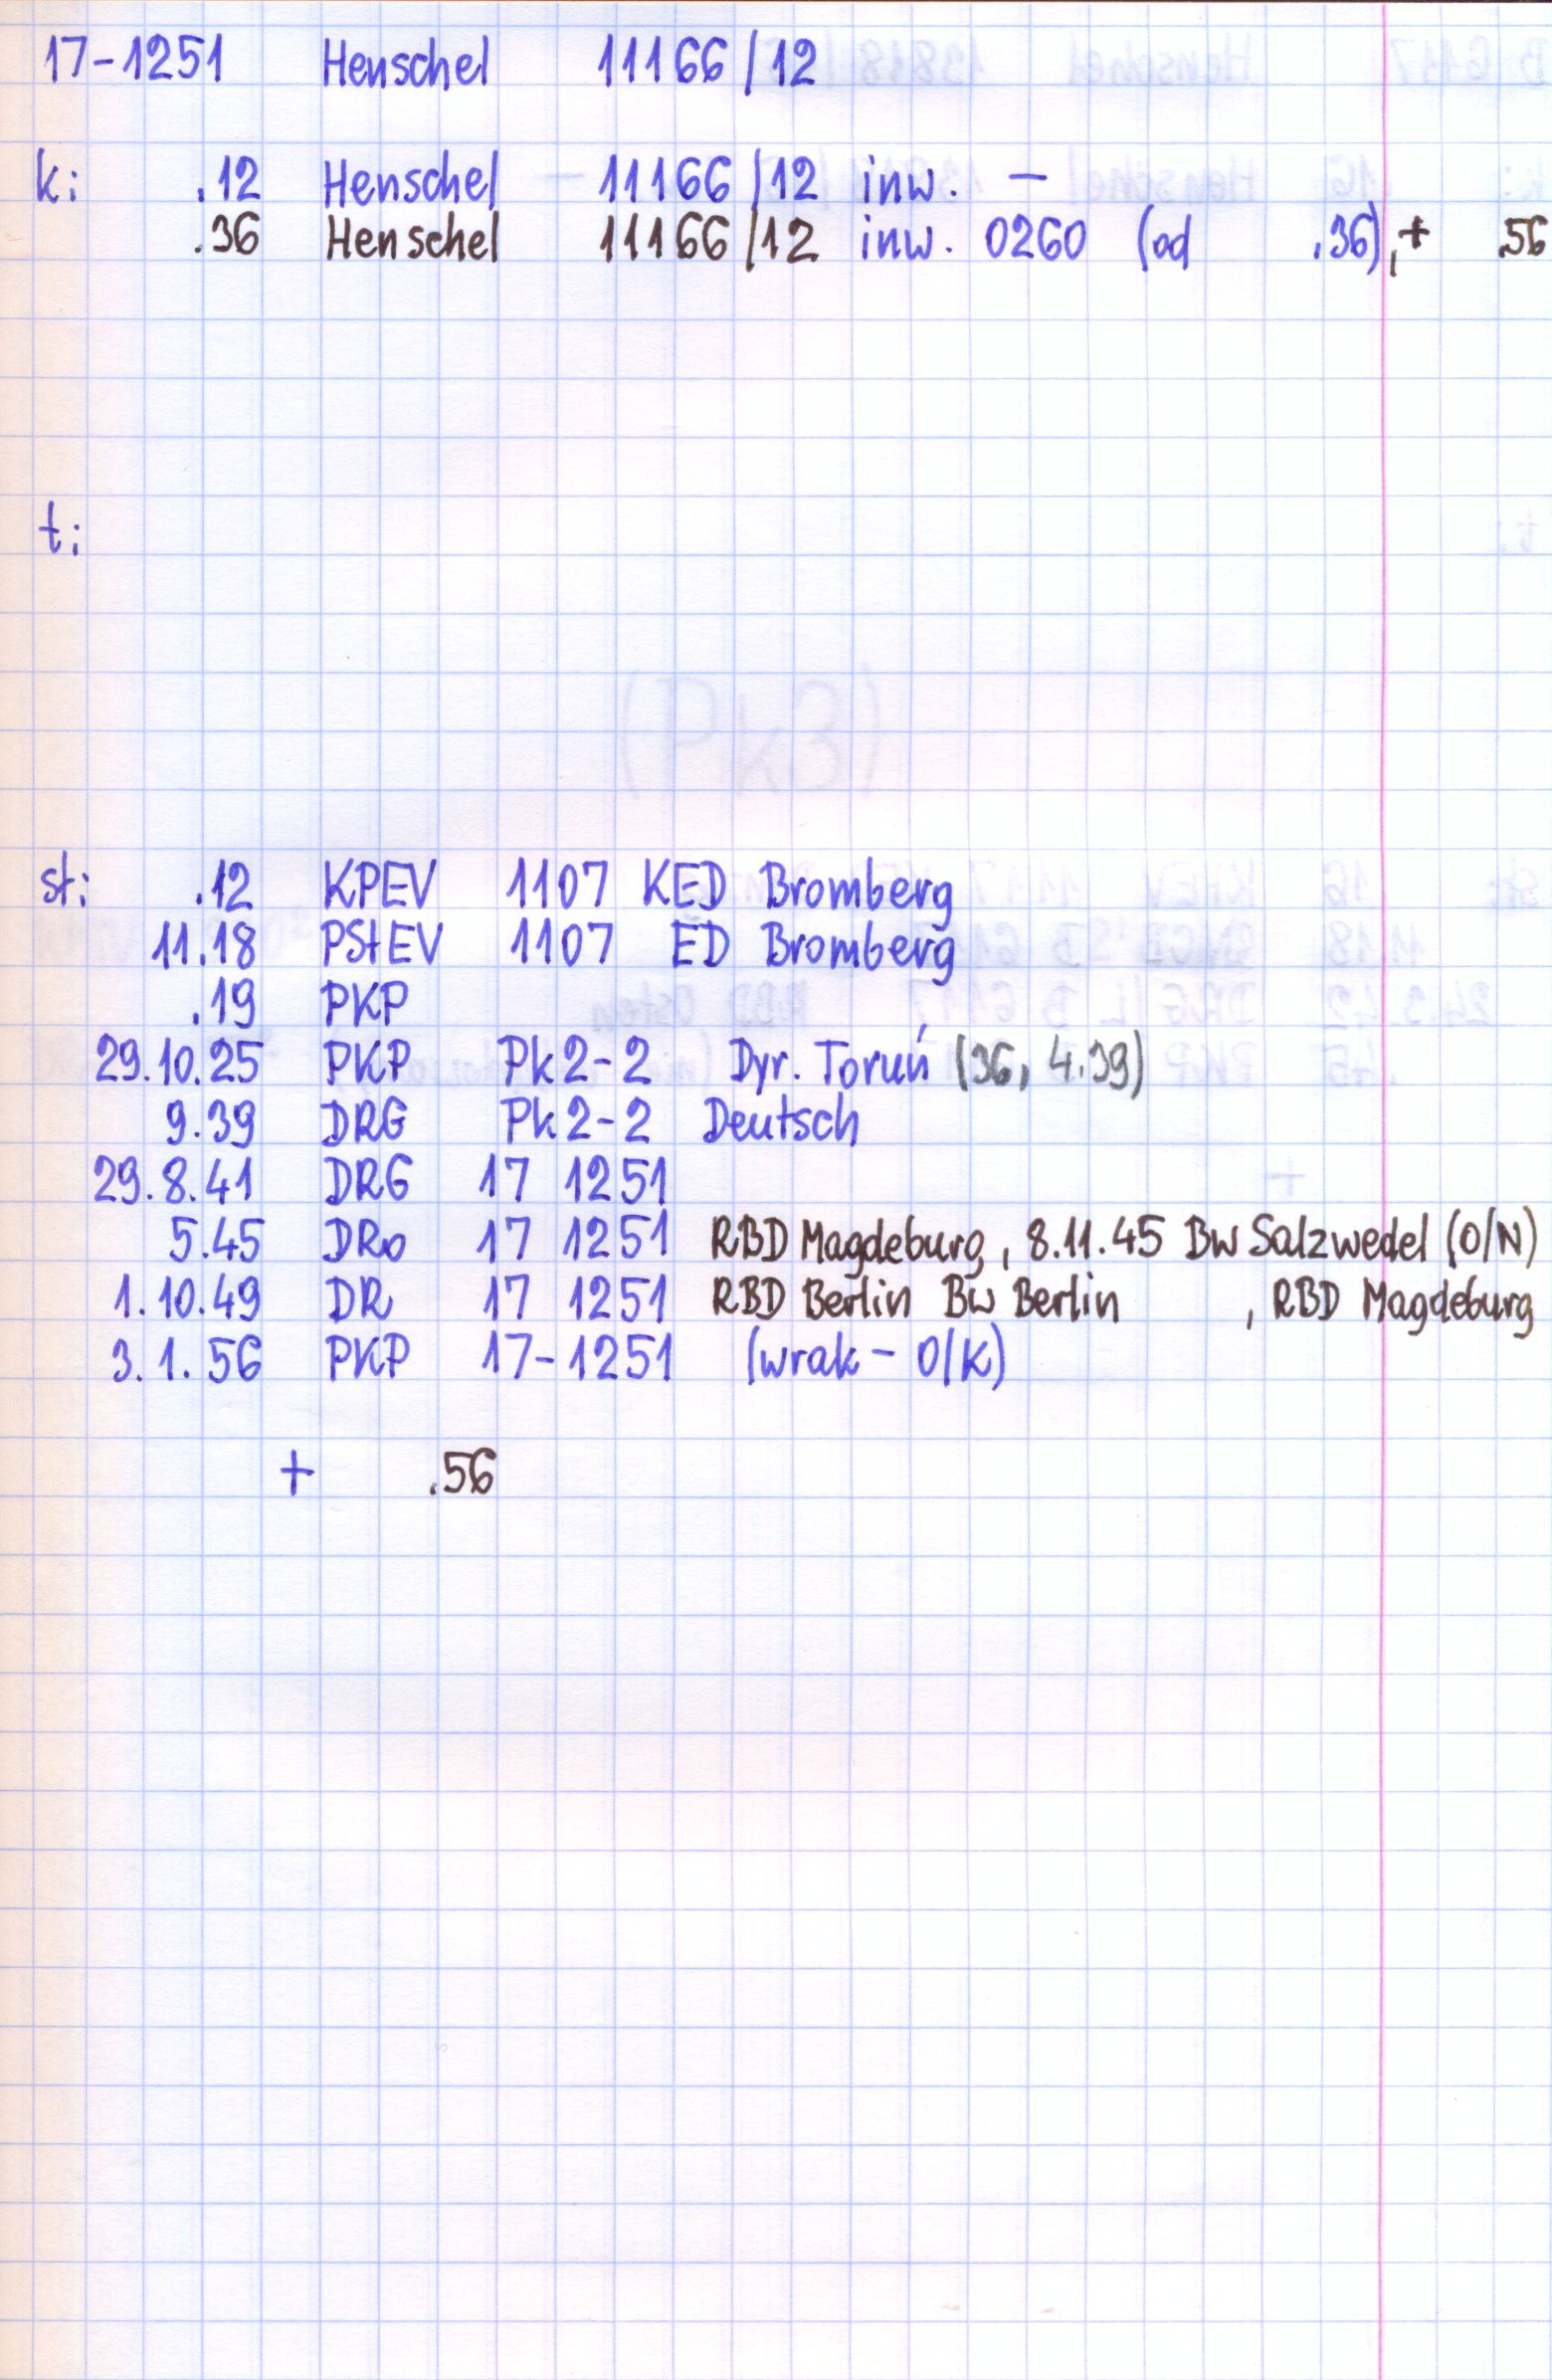 17-1251 Henschel 11166/12
k: .12 Henschel 11166/12 inw. -
.36 Henschel 11166/12 inw. 0260 (od .36), + .56
t:
(Pk3)
st: .12 KPEV 1107 KED Bromberg
11.18 PStEV 1107 ED Bromberg
.19 PKP
29.10.25 PKP Pk2-2 Dyr. Toruń (36, 4.39)
9.39 DRG Pk2-2 Deutsch
29.8.41 DRG 17 1251
5.45 DRo 17 1251 RBD Magdeburg, 8.11.45 Bw Salzwedel (O/N)
1.10.49 DR 17 1251 RBD Berlin Bw Berlin , RBD Magdeburg
3.1.56 PKP 17-1251 (wrak - O/K)
+ .56